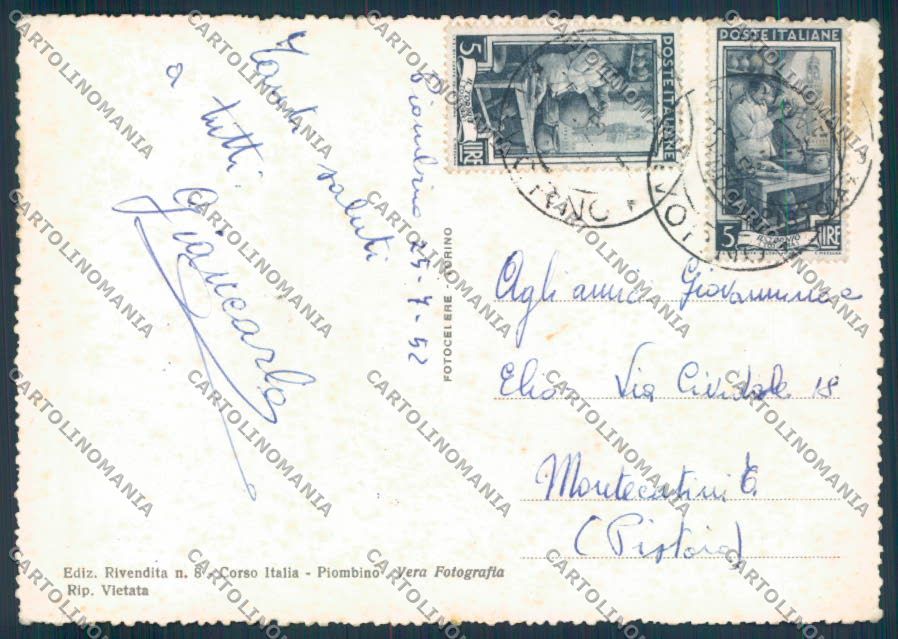 Piombino 25-7-52
Tanti saluti
a tutti.
Giancarlo
FOTOCELERE - TORINO
POSTE ITALIANE
5 LIRE
POSTE ITALIANE
5 LIRE
Agli amici Giovannina e
Elio Via Cividale 18
Montecatini T.
(Pistoia)
Ediz. Rivendita n. 8 - Corso Italia - Piombino Vera Fotografia
Rip. Vietata
CARTOLINOMANIA